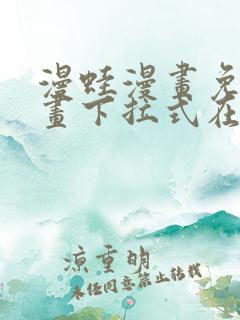 漫蛙漫畫免
畫下拉式在
涼重明
未经同意禁止转载